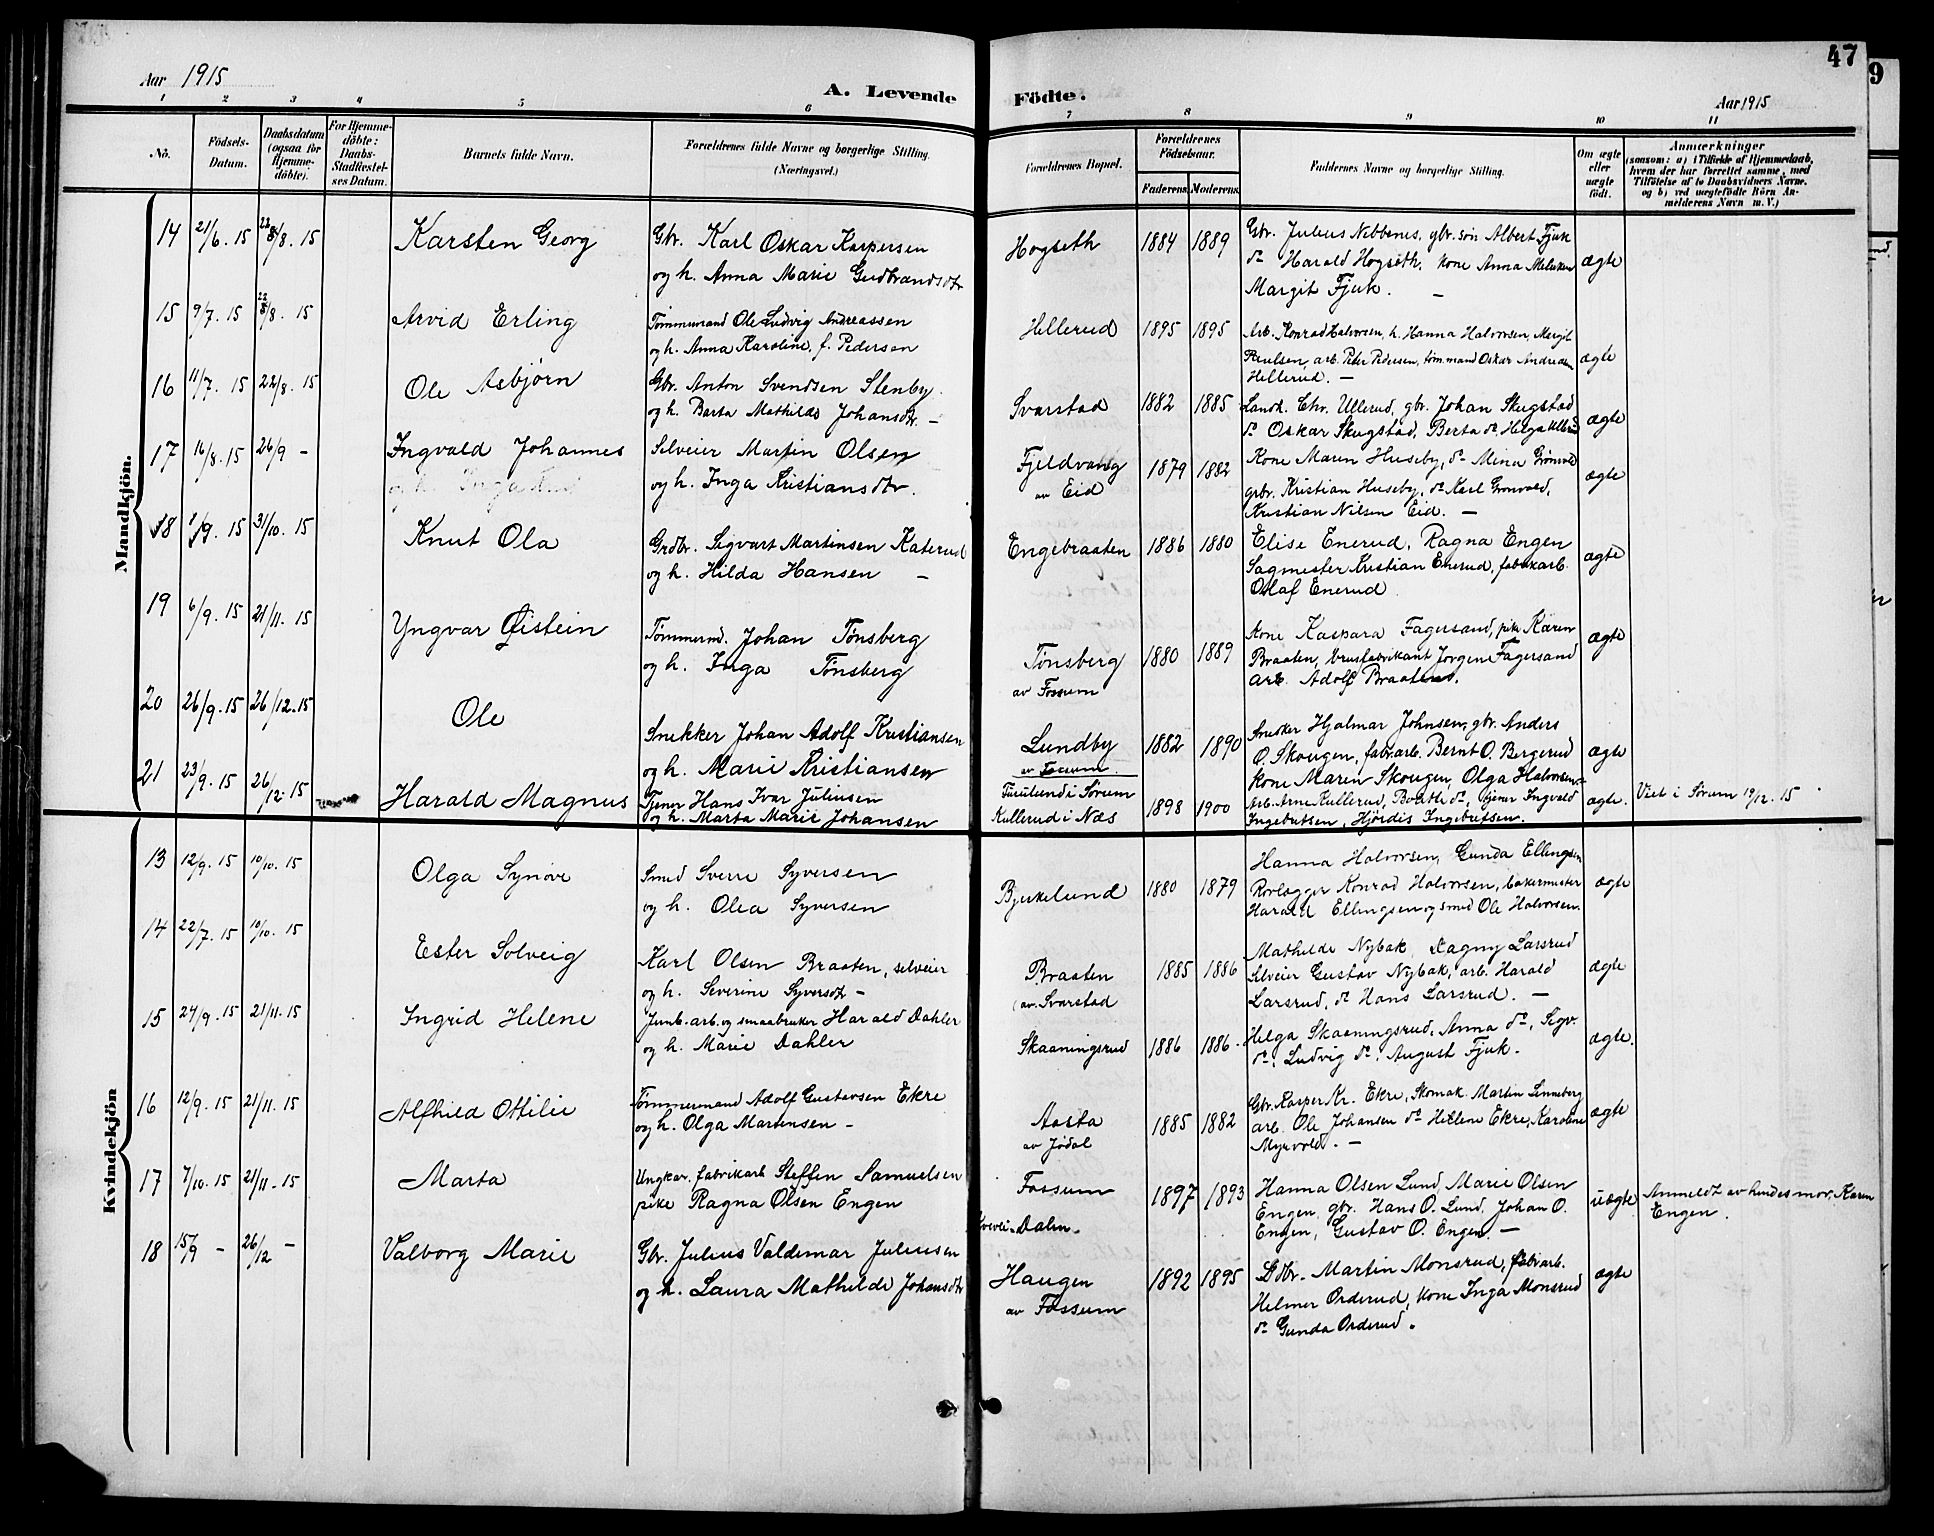 47
9
Aar 1915
A. Levende Födte.
Aar 1915
1 2 3 4 5 6 7 8 9 10 11
No.
Födsels-Datum.
Daabsdatum (ogsaa for Hjemme-döbte).
For Hjemme-döbte: Daabs-Stadfæstel-ses Datum.
Barnets fulde Navn.
Forældrenes fulde Navne og borgerlige Stilling. (Næringsvei.)
Forældrenes Bopæl.
Forældrenes Födselsaar.
Faderens. Moderens.
Faddernes Navne og borgerlige Stilling.
Om ægte eller uægte födt.
Anmærkninger
(saasom: a) i Tilfælde af Hjemmedaab, hvem der har forrettet samme, med Tilföielse af to Daabsvidners Navne, og b) ved uægtefödte Börn An-melderens Navn m. V.)
Mandkjön.
14 21/6. 15 22/8. 15 Karsten Georg
Gbr. Karl Oskar Kaspersen
og h. Anna Marie Gudbrandsdtr
Hogseth 1884 1889
Gbr. Julius Nebbenes, gbr. søn Albert Fjuk
do Harald Hogseth, kone Anna
Margit Fjuk. —
ægte
15 9/7. 15 22/8. 15 Arvid Erling
Tømmermand Ole Ludvig Andreassen
og h. Anna Karoline, f. Pedersen
Hellerud 1895 1895
Arb. Konrad Halvorsen, h. Hanna Halvorsen, Margit
Paulsen, arb. Peter Pedersen, tømmand Oskar Andreasen
Hellerud. —
ægte
16 11/7. 15 22/8. 15 Ole Asbjørn
Gbr. Anton Svendsen Stenby.
og h. Berta Mathilde Johansdtr. —
Svarstad 1882 1885
Landh. Chr. Ullerud, gbr. Johan Skugstad
do Oskar Skugstad, Berta do, Helga Ullerud
ægte
17 16/8. 15 26/9 — Ingvald Johannes
Selveier Martin Olsen
og h. Inga Kristiansdtr.
Fjeldvang
av Eid
1879 1882
Kone Maren Huseby, do Mina Grønvold
gbr. Kristian Huseby, do Karl Grønvold,
Kristian Nilsen Eid. —
ægte
18 1/9. 15 31/10. 15 Knut Ola
Grdbr. Sigvart Martinsen Katerud
og h. Hilda Hansen —
Engebraaten 1886 1880
Elise Enerud, Ragna Engen
Sagmester Kristian Enerud, fabrikarb.
Olaf Enerud
ægte
19 6/9. 15 21/11. 15 Yngvar Øistein
Tømmermd. Johan Tønsberg
og h. Inga Tønsberg
Tønsberg
av Fossum
1880 1889
Kone Kaspara Fagersand, pike Karen
Braaten, brusfabrikant Jørgen Fagersand
arb. Adolf Braaten.
ægte
20 26/9. 15 26/12. 15 Ole
Snekker Johan Adolf Kristiansen
og h. Marie Kristiansen
Lundby
av Fossum.
1882 1890
Snekker Hjalmar Johnsen, gbr. Anders
O. Skougen, fabr.arb. Bernt O. Bergerud
kone Maren Skougen, Olga Halvorsen
ægte
21 23/9. 15 26/12. 15 Harald Magnus
Tjener Hans Ivar Juliusen
og h. Marta Marie Johansen
Furulund i Sørum
Kullerud i Næs
1898 1900
Arb. Arne Kullerud, Borthe do, tjener Ingvald
Ingebretsen, Hjørdis Ingebretsen.
ægte.
Viet i Sørum 19/12. 15
Kvindekjön
13 12/9. 15 10/10. 15 Olga Synøve
Smed Sverre Syversen
og h. Olea Syversen
Bjerkelund 1880 1879
Hanna Halvorsen, Gunda Ellingsen
Rørlægger Konrad Halvorsen, bakermester
Harald Ellingsen og smed Ole Halvorsen.
ægte
14 22/7. 15 10/10. 15 Ester Solveig
Karl Olsen Braaten, selveier
og h. Severine Syversdtr —
Braaten
(av Svarstad
1885 1886
Mathilde Nybak, Dagny Larsrud
Selveier Gustav Nybak, arb. Harald
Larsrud, do Hans Larsrud. —
ægte
15 27/9. 15 21/11. 15 Ingrid Helene
Jernb. arb. og smaabruker Harald Dahler
og h. Marie Dahler
Skaaningsrud 1886 1886.
Helga Skaaningsrud, Anna do, Sigv.
do, Ludvig do, August Fjuk.
ægte.
16 12/9. 15 21/11. 15 Alfhild Otilie
Tømmermand Adolf Gustavsen Ekre
og h. Olga Martensen —
Aasta
av Jødal
1885 1882
Gbr. Kasper Kr. Ekre, Skomak. Martin Linneberg
arb. Ole Johansen do Hellene Ekre, Karoline
Myrvold. —
ægte
17 7/10. 15 21/11. 15 Marta
Ungkar. fabrikarb Steffen Samuelsen
pike Ragna Olsen Engen
Fossum
Dalen.
1897 1893
Hanna Olsen Lund, Marie Olsen
Engen, gbr. Hans O. Lund, Johan O.
Engen, Gustav O. Engen. —
uægte
Anmeldt av hendes mor, Karen
Engen.
18 15/9 — 26/12 — Valborg Marie
Gbr. Julius Valdemar Juliusen
og h. Laura Mathilde Johansdtr
Haugen
av Fossum
1892 1895
Gdbr. Martin Monsrud, fabr.arb.
Helmer Orderud, kone Inga Monsrud
do Gunda Orderud.
ægte